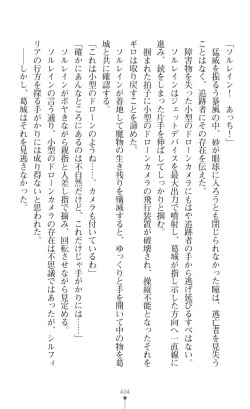 「ソルレイン！　あっち！」
　猛威を振るう暴風の中、砂が眼球に入ろうとも閉じられなかった瞳は、逃亡者を見失う
ことはなく、追跡者にその存在を伝えた。
　ソルレインはジェットデバイスを最大出力で噴射し、葛城が指し示した方向へ一直線に
進み、銃をしまった片手を伸ばしてしっかりと掴む。
　障害物を失った小型のドローンカメラはもはや追跡者の手から逃げ延びるすべはない。
　掴まれた拍子に小型のドローンカメラの飛行装置が破壊され、操縦不能となったそれを
ギロは取り戻すことを諦めた。
　ソルレインが着地して魔物の生き残りを一掃すると、ゆっくりと手を開いて中の物を葛
城と共に確認する。
「これは小型のドローンのようね……。カメラも付いているわ」
「確かにあんなところにあるのは不自然だけど、これだけじゃ手がかりには……」
　ソルレインがボヤきながら親指と人差し指で摘み、回転させながら見定める。
　ソルレインの言う通り、小型のドローンカメラの存在は不思議ではあったが、シルフィ
リアの行方を探る手がかりには成り得ないと思われた。
　――しかし、葛城はそれを見逃さなかった。
404